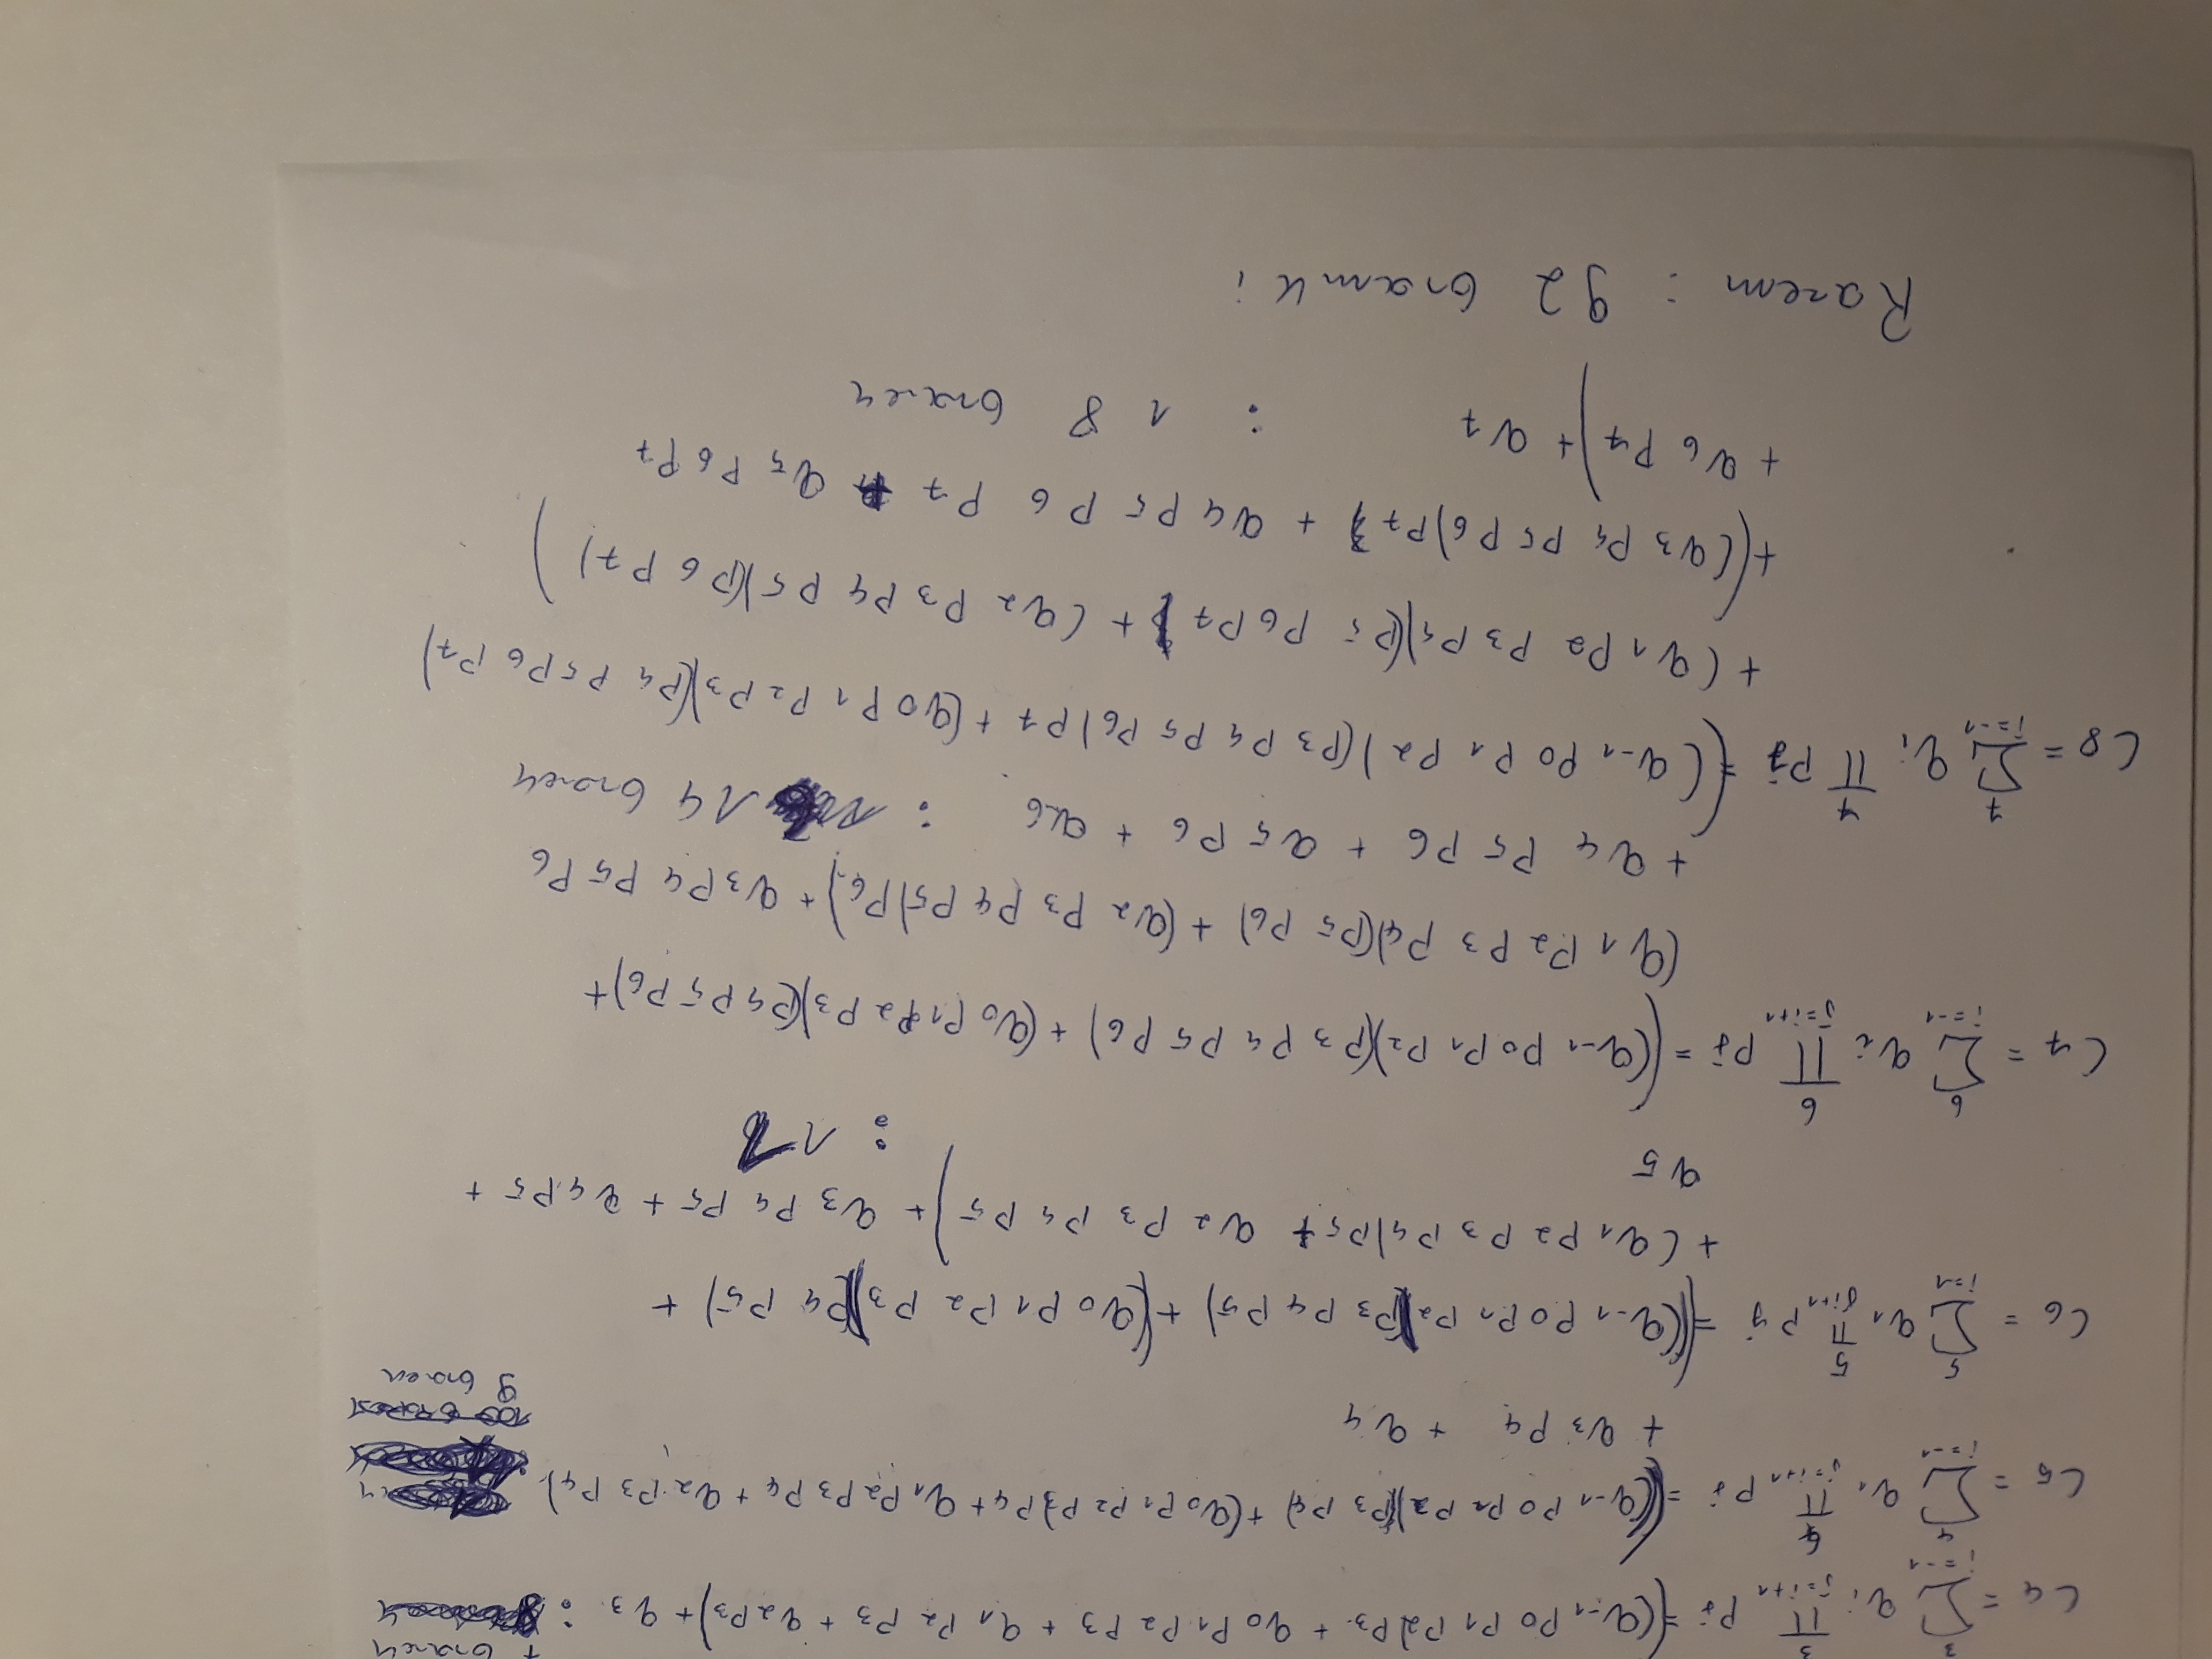 + bramek
C4 = 3 ∑ i=-1 qi 3 ∏ j=i+1 pj = ((q-1 p0 p1 p2) p3 + q0 p1 p2 p3 + q1 p2 p3 + q2 p3) + q3 :
C5 = 4 ∑ i=-1 q1 4 ∏ j=i+1 pj = ((q-1 p0 p1 p2)(p3 p4) + (q0 p1 p2 p3) p4 + q1 p2 p3 p4 + q2 p3 p4)
+ q3 p4 + q4
9 bramek
C6 = 5 ∑ i=-1 q1 5 ∏ ji+1 pj = ((q-1 p0 p1 p2)(p3 p4 p5) + (q0 p1 p2 p3)(p4 p5) +
+ (q1 p2 p3 p4) p5 + q2 p3 p4 p5) + q3 p4 p5 + q4 p5 +
q5
: 11
C7 = 6 ∑ i=-1 qi 6 ∏ j=i+1 pj = ((q-1 p0 p1 p2)(p3 p4 p5 p6) + (q0 p1 p2 p3)(p4 p5 p6) +
(q1 p2 p3 p4)(p5 p6) + (q2 p3 p4 p5) p6) + q3 p4 p5 p6
+ q4 p5 p6 + q5 p6 + q6 : 14 bramek
C8 = 7 ∑ i=-1 qi 7 ∏ pj = ((q-1 p0 p1 p2)(p3 p4 p5 p6) p7 + (q0 p1 p2 p3)(p4 p5 p6 p7)
+ (q1 p2 p3 p4)(p5 p6 p7) + (q2 p3 p4 p5)(p6 p7))
+ ((q3 p4 p5 p6) p7 + q4 p5 p6 p7 + q5 p6 p7
+ q6 p7) + q7 : 18 bramek
Razem : 92 bramki